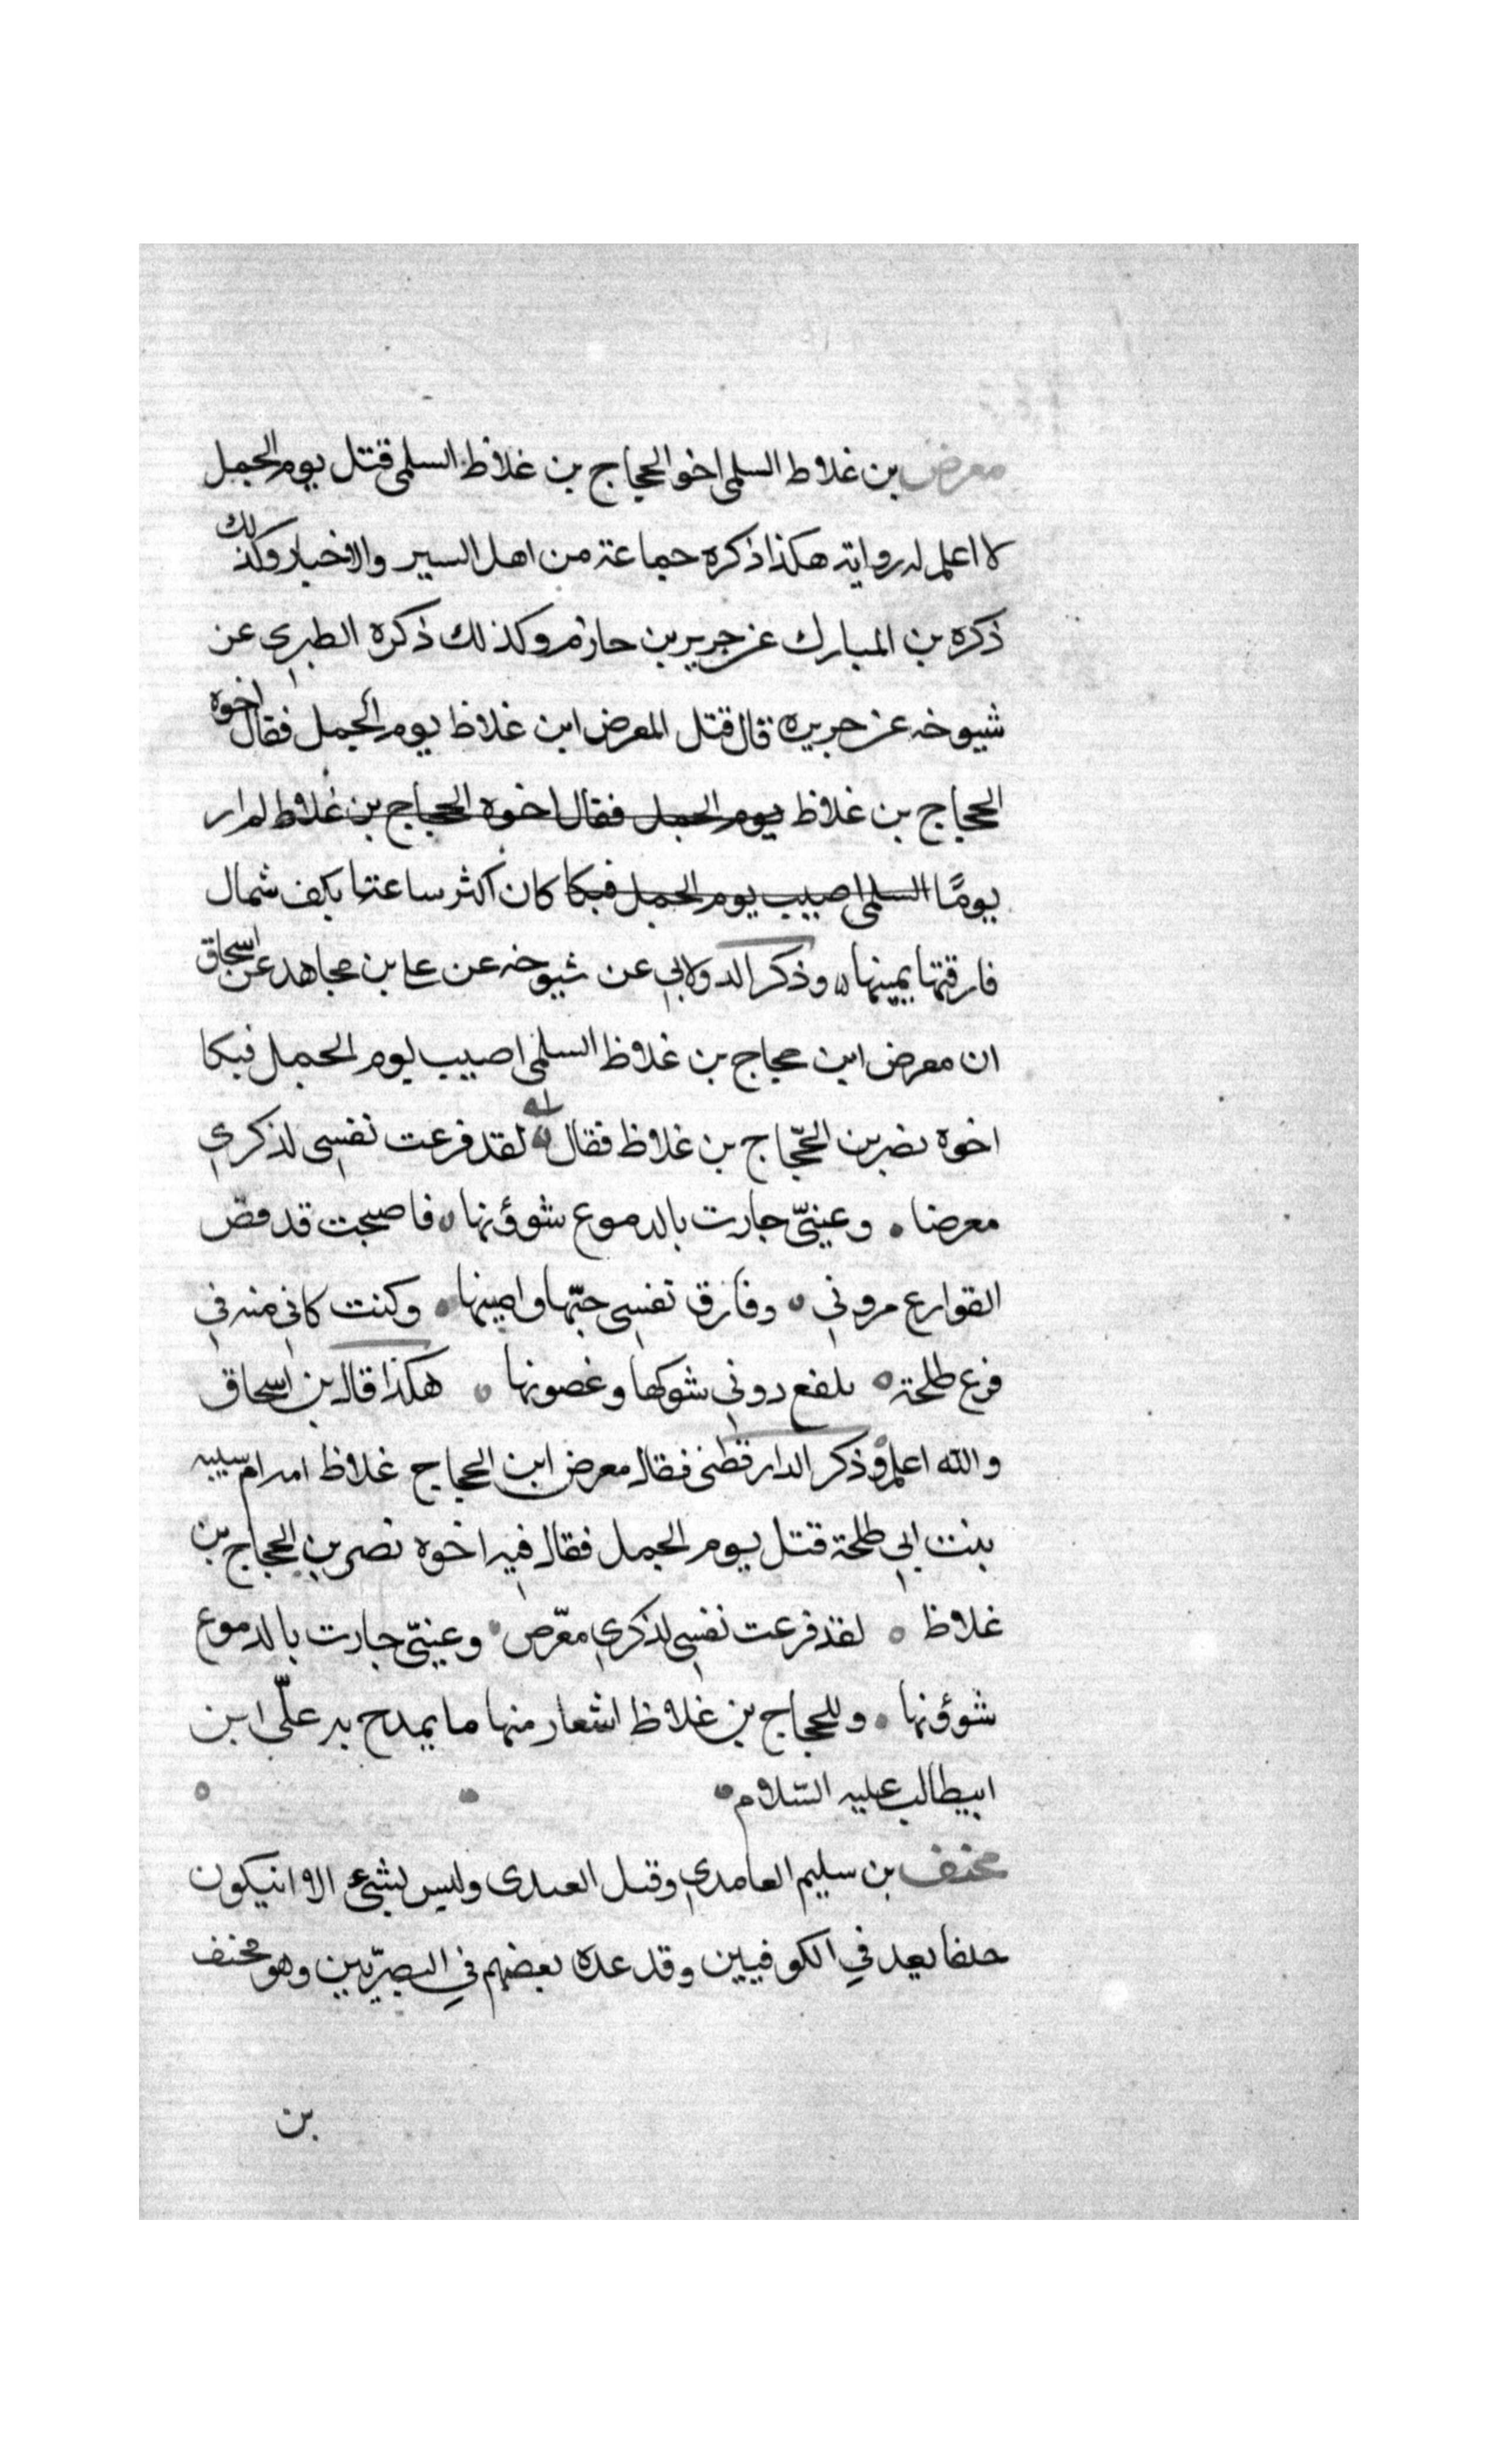 معرض بن غلاط السلمى اخو الحجاج بن غلاظ السلمى قتل يوم الجمل
لا اعلم له رواية هكذا ذكره جماعة من اهل السير والاخبار وكذلك
ذكره بن المبارك عن جرير بن حازم وكذلك ذكره الطبري عن
شيوخه عن جريره قال قتل المعرض ابن غلاظ يوم الجمل فقال اخوه
الحجاج بن غلاظ يوم الجمل فقال اخوه الحجاج بن غلاط لم ار
يومًا السلمى اصيب يوم الجمل فبكا كان اكثر ساعتا بكف شمال
فارقتها يمينها وذكر الدولابي عن شيوخه عن علي بن مجاهد عن اسحاق
ان معرض ابن حجاج بن غلاظ السلمى اصيب يوم الجمل فبكا
اخوه نضر بن الحجّاج بن غلاظ فقال له لقد فرعت نفسي لذكري
معرضا وعينيّ جارت بالدموع شوؤنها فاصبحت قد
القوارع مروتي وفارق نفسي حبّها وامينها وكنت كاني منه في
فرع طلحة تلفع دوني شوكها وغصونها هكذا قال بن اسحاق
والله اعلم وذكر الدارقطنى فقال معرض ابن الحجاج غلاظ امه ام شيبه
بنت ابي طلحة قتل يوم الجمل فقال فيه اخوه نصر بن الحجاج بن
غلاظ لقد فرعت نفسي لذكري معّرض وعينيّ جارت بالدموع
شوؤنها وللحجاج بن غلاظ اشعار منها ما يمدح به علّى ابن
ابيطالب عليه السّلام
مخنف بن سليم العامدي وقيل العبدى وليس بشئ الا انيكون
حلفا يعد في الكوفيين وقد عده بعضهم في البصرّيين وهو مخنف
بن